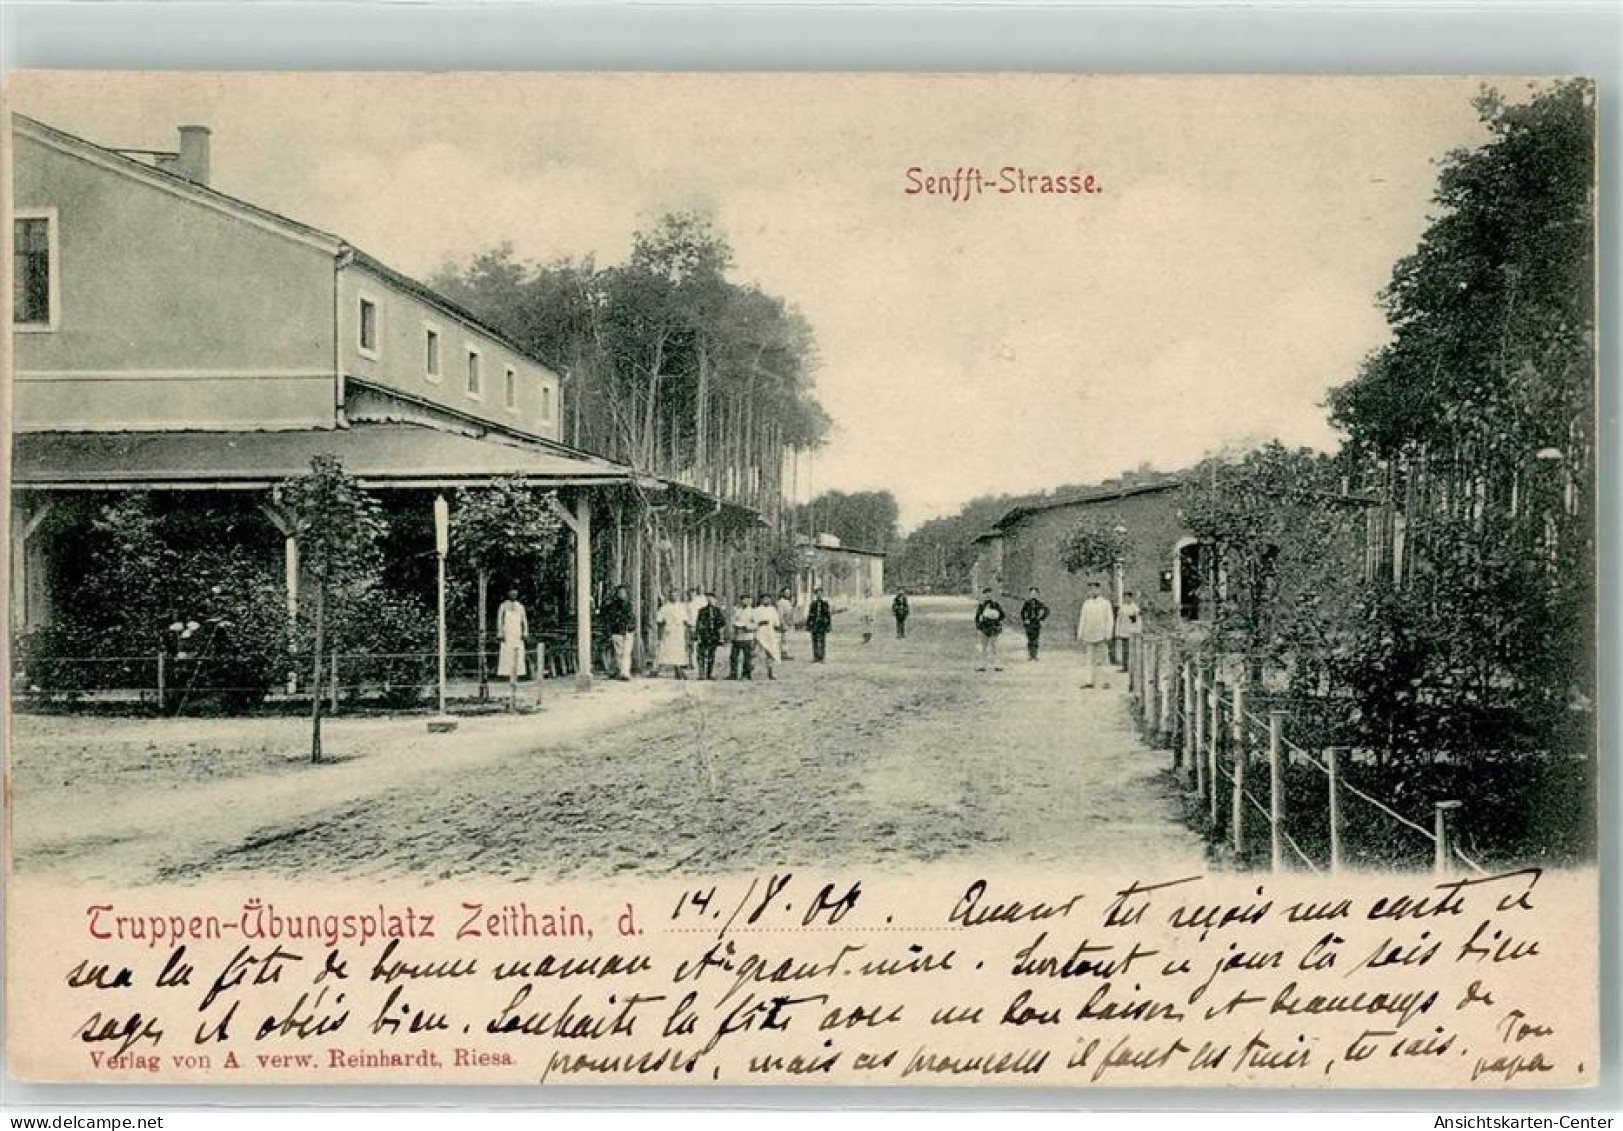 Senfft-Strasse.
Truppen-Übungsplatz Zeithain, d. 14./8.00. Quand tu reçois ma carte ce
sera la fête de bonne maman et grand-mère. Surtout ce jour là sois bien
sage et obéis bien. Souhaite la fête avec un bon baiser et beaucoup de
promesses, mais ces promesses il faut les tenir, tu sais. Ton
papa.
Verlag von A verw. Reinhardt, Riesa.
AnsichtsKarten-Center